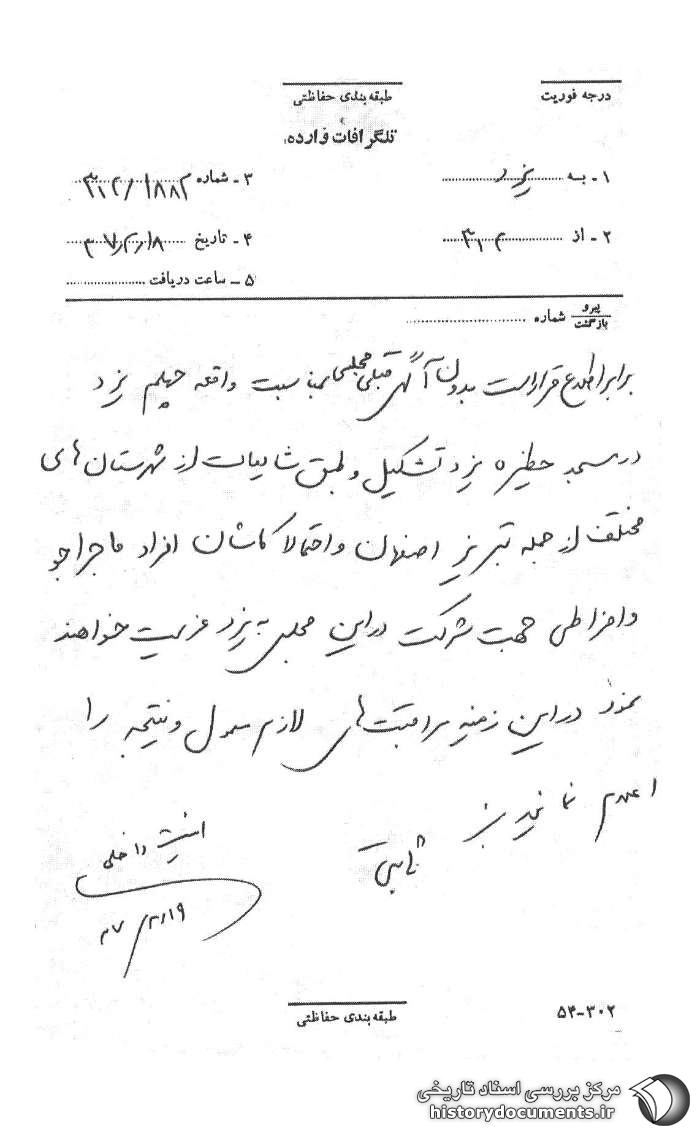 درجه فوریت
طبقه‌بندی حفاظتی
تلگرافات وارده
۱ - به یزد
۳ - شماره ۳۱۲/۱۸۸۲
۲ - از ۳۱۲
۴ - تاریخ ۳۷/۲/۱۸
۵ - ساعت دریافت
پیرو
بازگشت
شماره
برابر اطلاع قرار است بدون آگهی قبلی مجلس بمناسبت واقعه چهلم یزد
در مسجد حظیره یزد تشکیل و طبق شایعات از شهرستان های
مختلف از جمله تبریز اصفهان و احتمالا کاشان افراد ماجراجو
و افراطی جهت شرکت در این مجلس به یزد عزیمت خواهند
نمود در این زمینه مراقبت‌های لازم معمول و نتیجه را
اعلام نمایند
ثابتی
امنیت داخلی
۳۷/۲/۱۹
طبقه‌بندی حفاظتی
۵۴-۳۰۲
مرکز بررسی اسناد تاریخی
historydocuments.ir